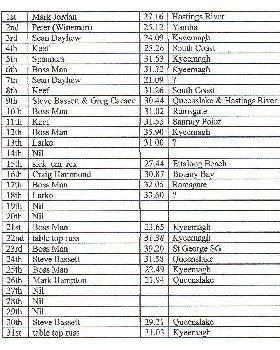 1st Mark Jordan 27.16 Hastings River
2nd Peter (Wineman) 25.12 Yamba
3rd Sean Dayhew 24.09 Kyeemagh
4th Keef 25.26 South Coast
5th Spanners 31.53 Kyeemagh
6th Boss Man 31.52 Kyeemagh
7th Sean Dayhew 21.09 ?
8th Keef 31.26 South Coast
9th Steve Bassett & Greg 30.44 Queenslake & Hastings River
10th Boss Man 31.02 Ramsgate
11th Keef 31.55 Sanctury Point
12th Boss Man 35.90 Kyeemagh
13th Larko 31.00 ?
14th Nil
15th sick_em_rex 27.44 Ettalong Beach
16th Craig Hammond 30.87 Botany Bay
17th Boss Man 32.05 Ramsgate
18th Larko 33.60 ?
19th Nil
20th Nil
21st Boss Man 23.65 Kyeemagh
22nd table top russ 31.38 Kyeemagh
23rd Boss Man 39.20 St George SG
24th Steve Bassett 31.58 Queenslake
25th Boss Man 22.49 Kyeemagh
26th Mark Hampton 21.94 Queenslake
27th Nil
28th Nil
29th Nil
30th Steve Bassett 29.21 Queenslake
31st table top russ 21.03 Kyeemagh